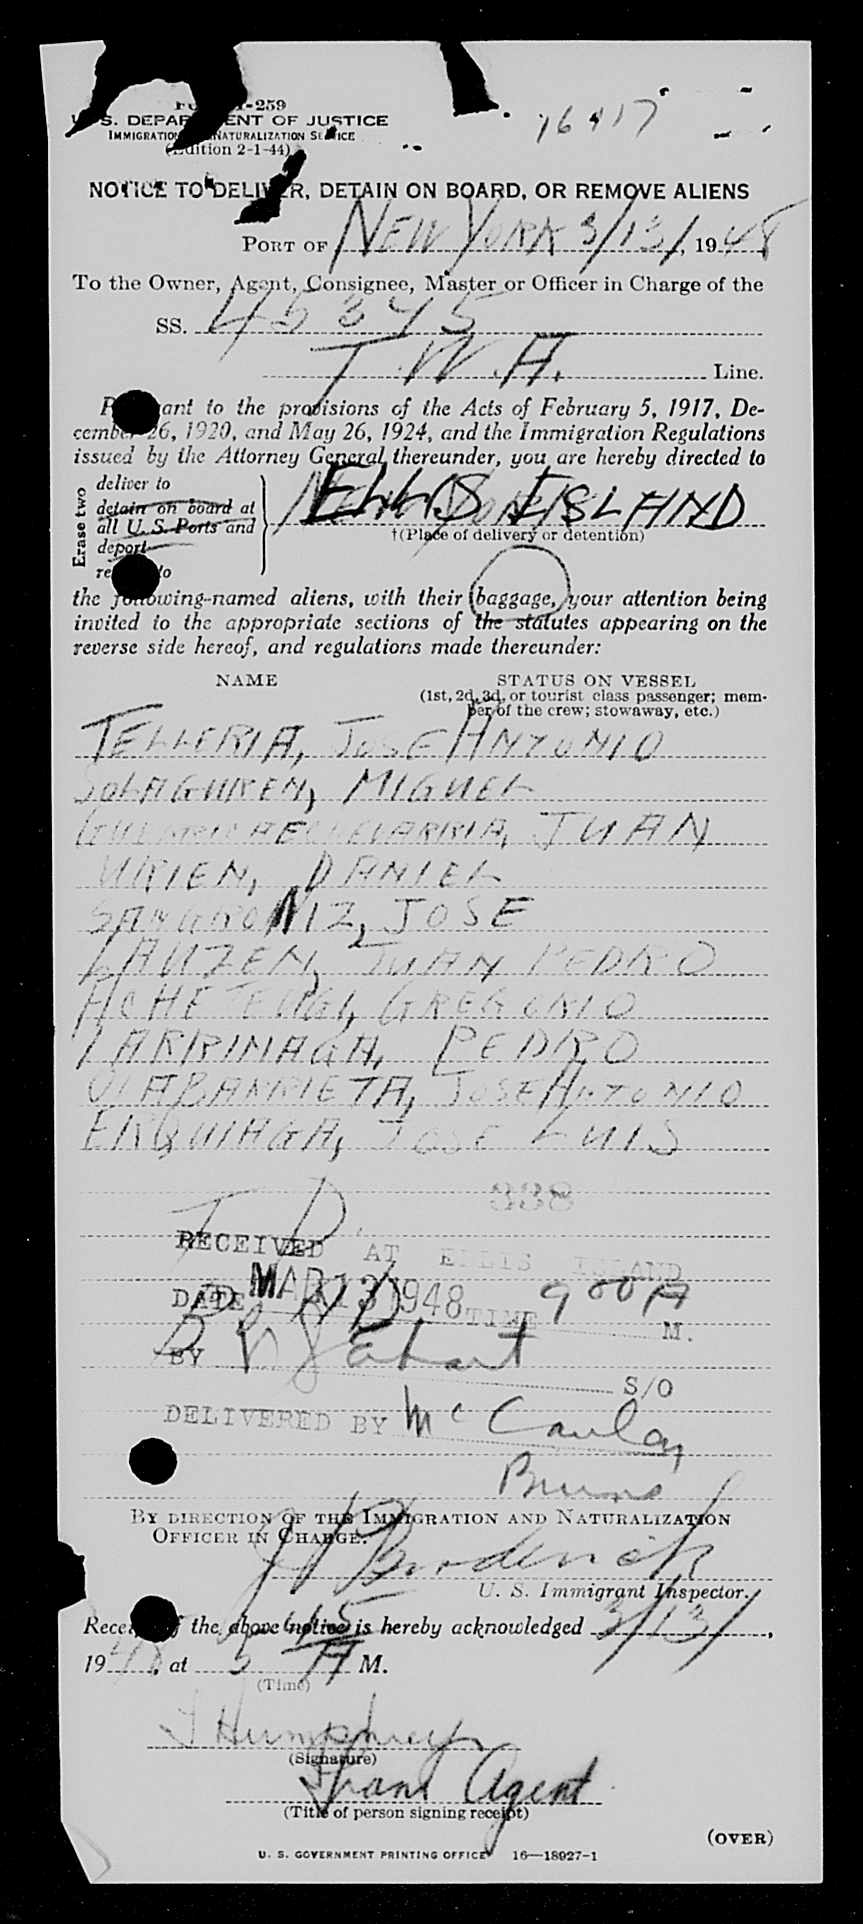 16417
U. S. DEPARTMENT OF JUSTICE
IMMIGRATION AND NATURALIZATION SERVICE
(Edition 2-1-44)
NOTICE TO DELIVER, DETAIN ON BOARD, OR REMOVE ALIENS
PORT OF NEW YORK 3/13/, 1948
To the Owner, Agent, Consignee, Master or Officer in Charge of the
SS. 45345
T.W.A. Line.
Pursuant to the provisions of the Acts of February 5, 1917, De-
cember 26, 1920, and May 26, 1924, and the Immigration Regulations
issued by the Attorney General thereunder, you are hereby directed to
Erase two
deliver to
detain on board at
all U. S. Ports and
deport
remove to
ELLIS ISLAND
†(Place of delivery or detention)
the following-named aliens, with their baggage, your attention being
invited to the appropriate sections of the statutes appearing on the
reverse side hereof, and regulations made thereunder:
NAME STATUS ON VESSEL
(1st, 2d, 3d, or tourist class passenger; mem-
ber of the crew; stowaway, etc.)
TELLERIA, JOSE ANTONIO
SOLAGUREN, MIGUEL
JUAN
URIEN, DANIEL
SANGRONIZ, JOSE
LAUZEN, JUAN PEDRO
GREGORIO
LARRINAGA, PEDRO
OLABARRIETA, JOSE ANTONIO
ERQUIAGA, JOSE LUIS
338
T D
RECEIVED AT ELLIS ISLAND
DATE MAR 13 1948 TIME 9 00 A M.
BY S/O
DELIVERED BY McCauley
Bruns
BY DIRECTION OF THE IMMIGRATION AND NATURALIZATION
OFFICER IN CHARGE:
J P Broderick
U. S. Immigrant Inspector.
Receipt of the above notice is hereby acknowledged 3/13/,
1948, at 5 45 A M.
(Time)
J Humphreys
(Signature)
Trans Agent
(Title of person signing receipt)
(OVER)
U. S. GOVERNMENT PRINTING OFFICE 16—18927-1